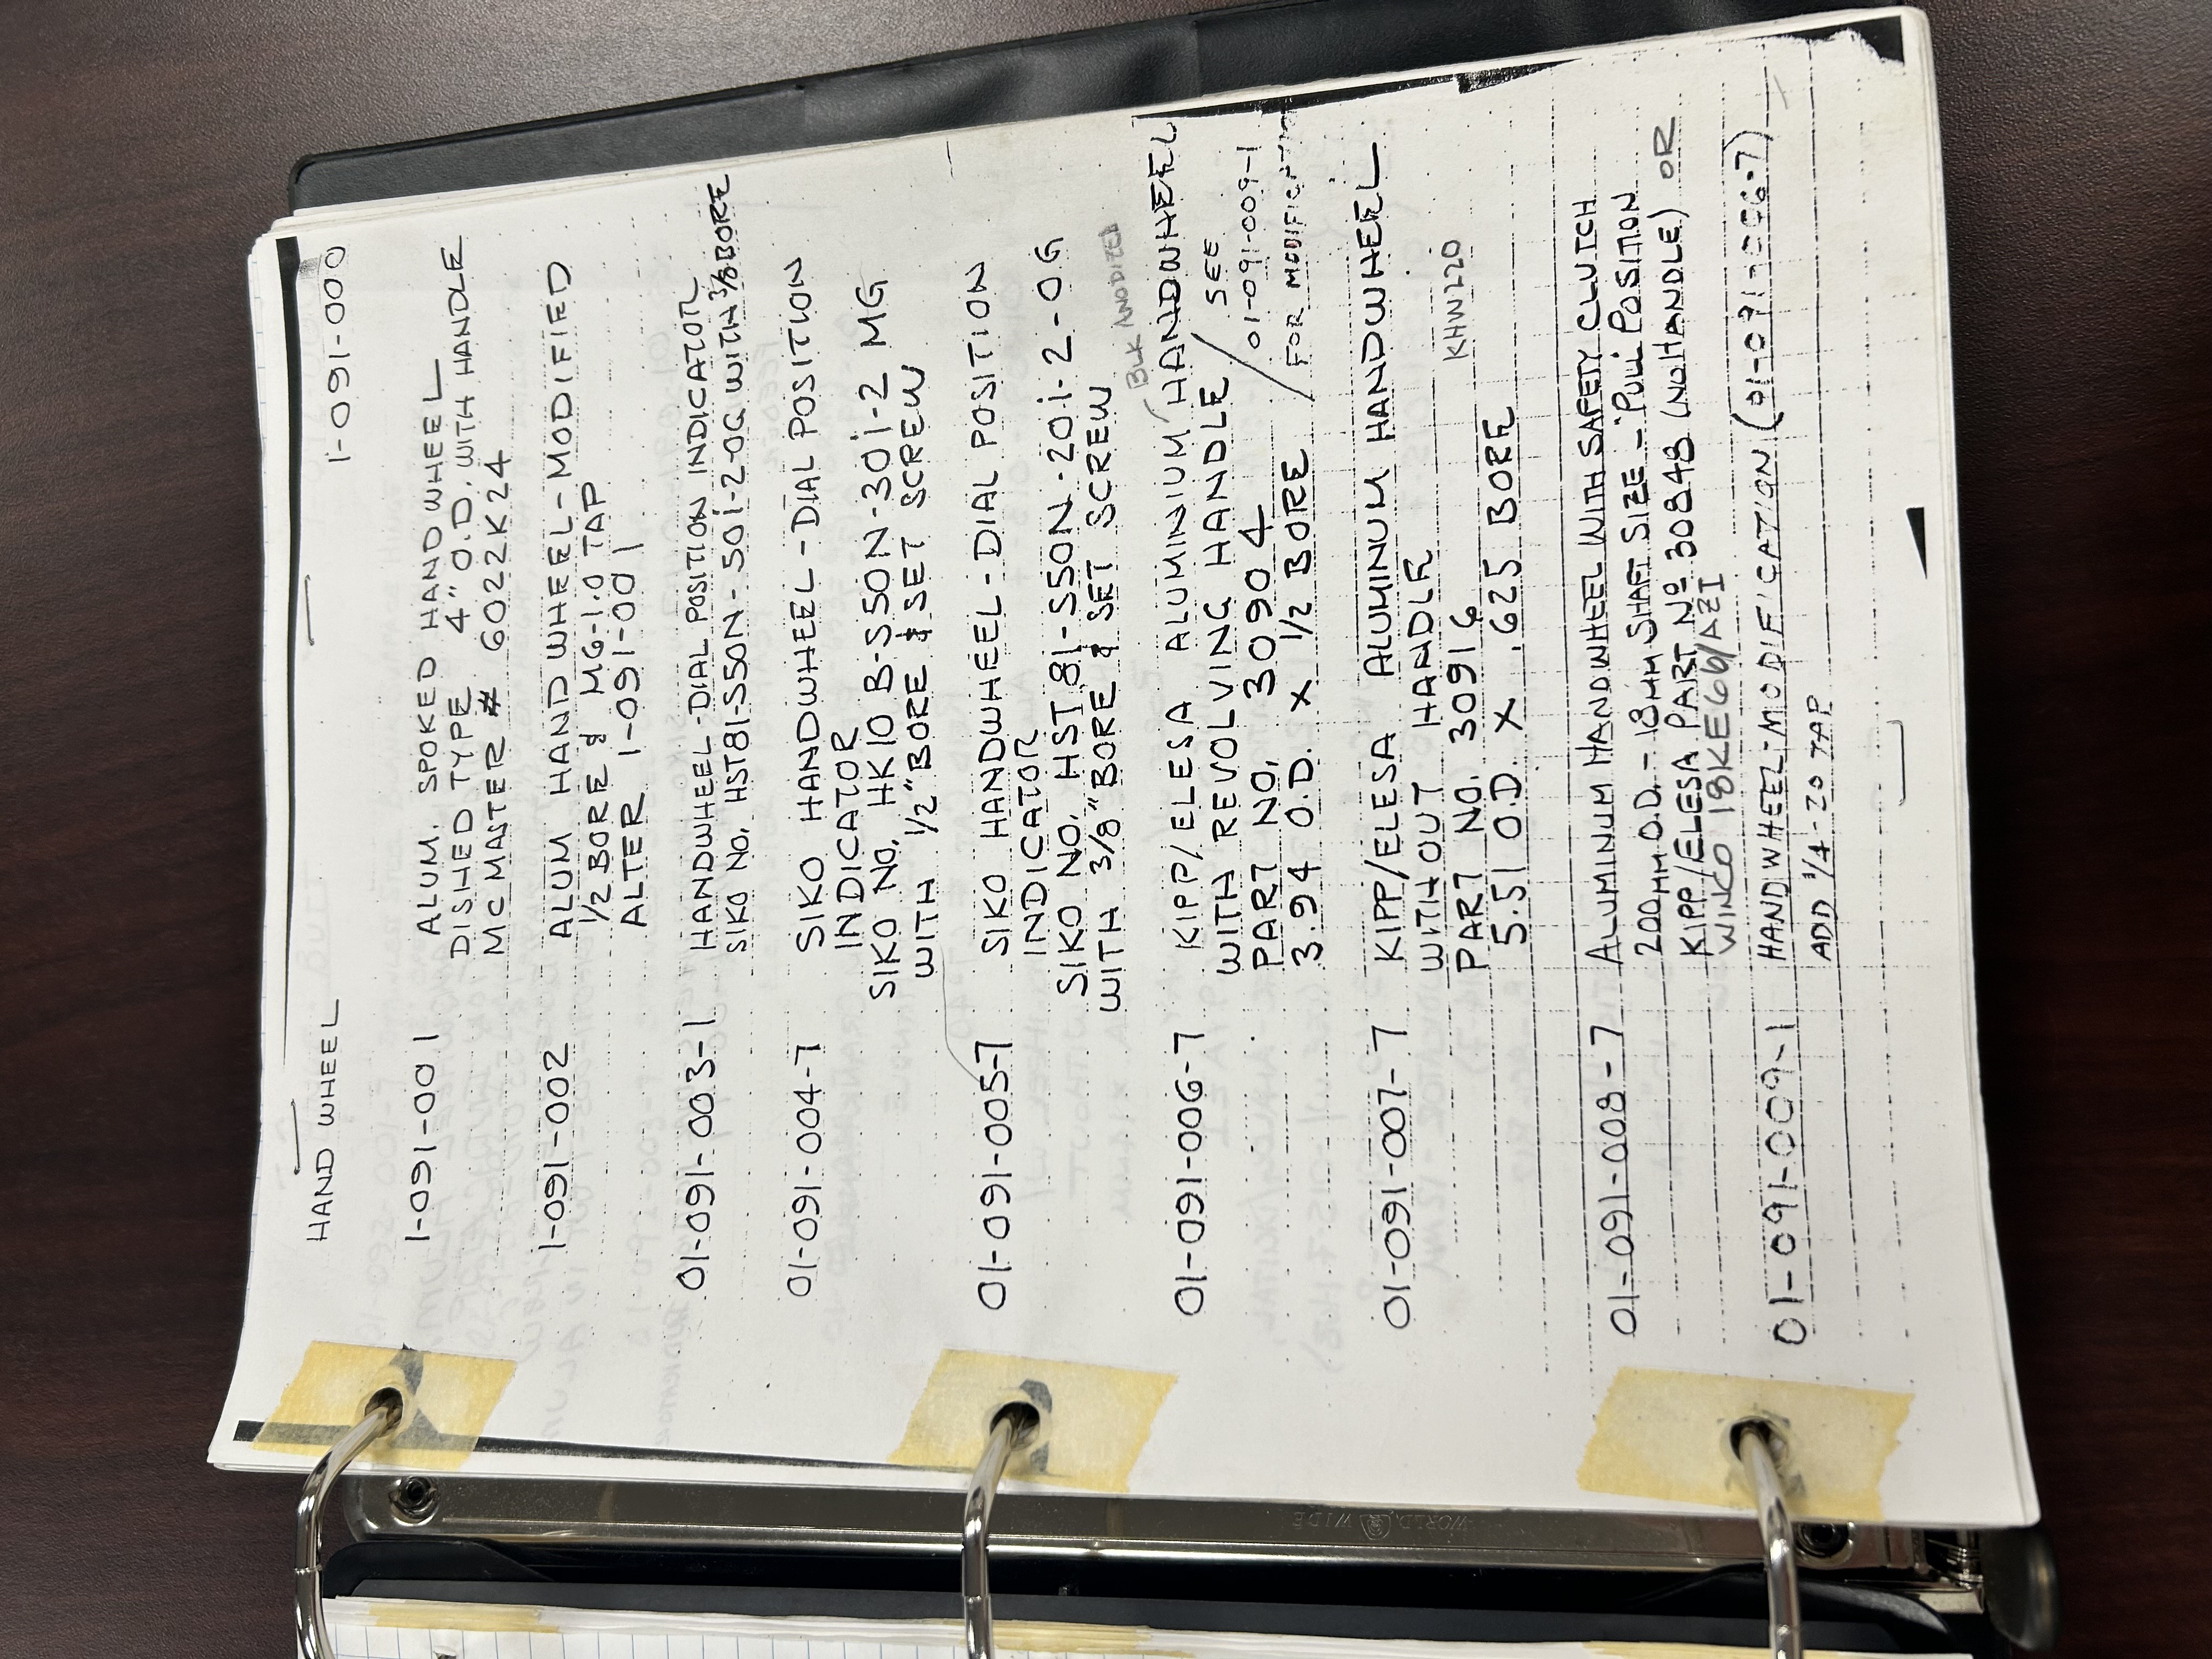 HAND WHEEL 1-091-000
1-091-001 ALUM. SPOKED HAND WHEEL
DISHED TYPE 4" O.D. WITH HANDLE
MCMASTER # 6022K24
1-091-002 ALUM HAND WHEEL-MODIFIED
1/2 BORE & M6-1.0 TAP
ALTER 1-091-001
01-091-003-1 HANDWHEEL-DIAL POSITION INDICATOR
SIKO NO. HST81-S50N-50i-2-0G WITH 3/8 BORE
01-091-004-7 SIKO HANDWHEEL-DIAL POSITION
INDICATOR
SIKO NO. HK10 B-S50N-30i-2 MG
WITH 1/2" BORE & SET SCREW
01-091-005-7 SIKO HANDWHEEL-DIAL POSITION
INDICATOR
SIKO NO. HST 81-S50N-20i-2-0G
WITH 3/8" BORE & SET SCREW
BLK ANODIZED
01-091-006-7 KIPP/ELESA ALUMINIUM HANDWHEEL
WITH REVOLVING HANDLE / SEE
PART NO. 30904 01-091-009-1
3.94 O.D. X 1/2 BORE FOR MODIFICATION
01-091-007-7 KIPP/ELESA ALUMINUM HANDWHEEL
WITHOUT HANDLE
PART NO. 30916 KHW220
5.51 O.D. X .625 BORE
01-091-008-7 ALUMINUM HANDWHEEL WITH SAFETY CLUTCH
200MM O.D. - 18MM SHAFT SIZE - "PULL" POSITION
KIPP/ELESA PART Nº 30848 (NO HANDLE) OR
WINCO 18KE66/AZI
01-091-009-1 HANDWHEEL-MODIFICATION (01-091-006-7)
ADD 1/4-20 TAP
WORLD WIDE